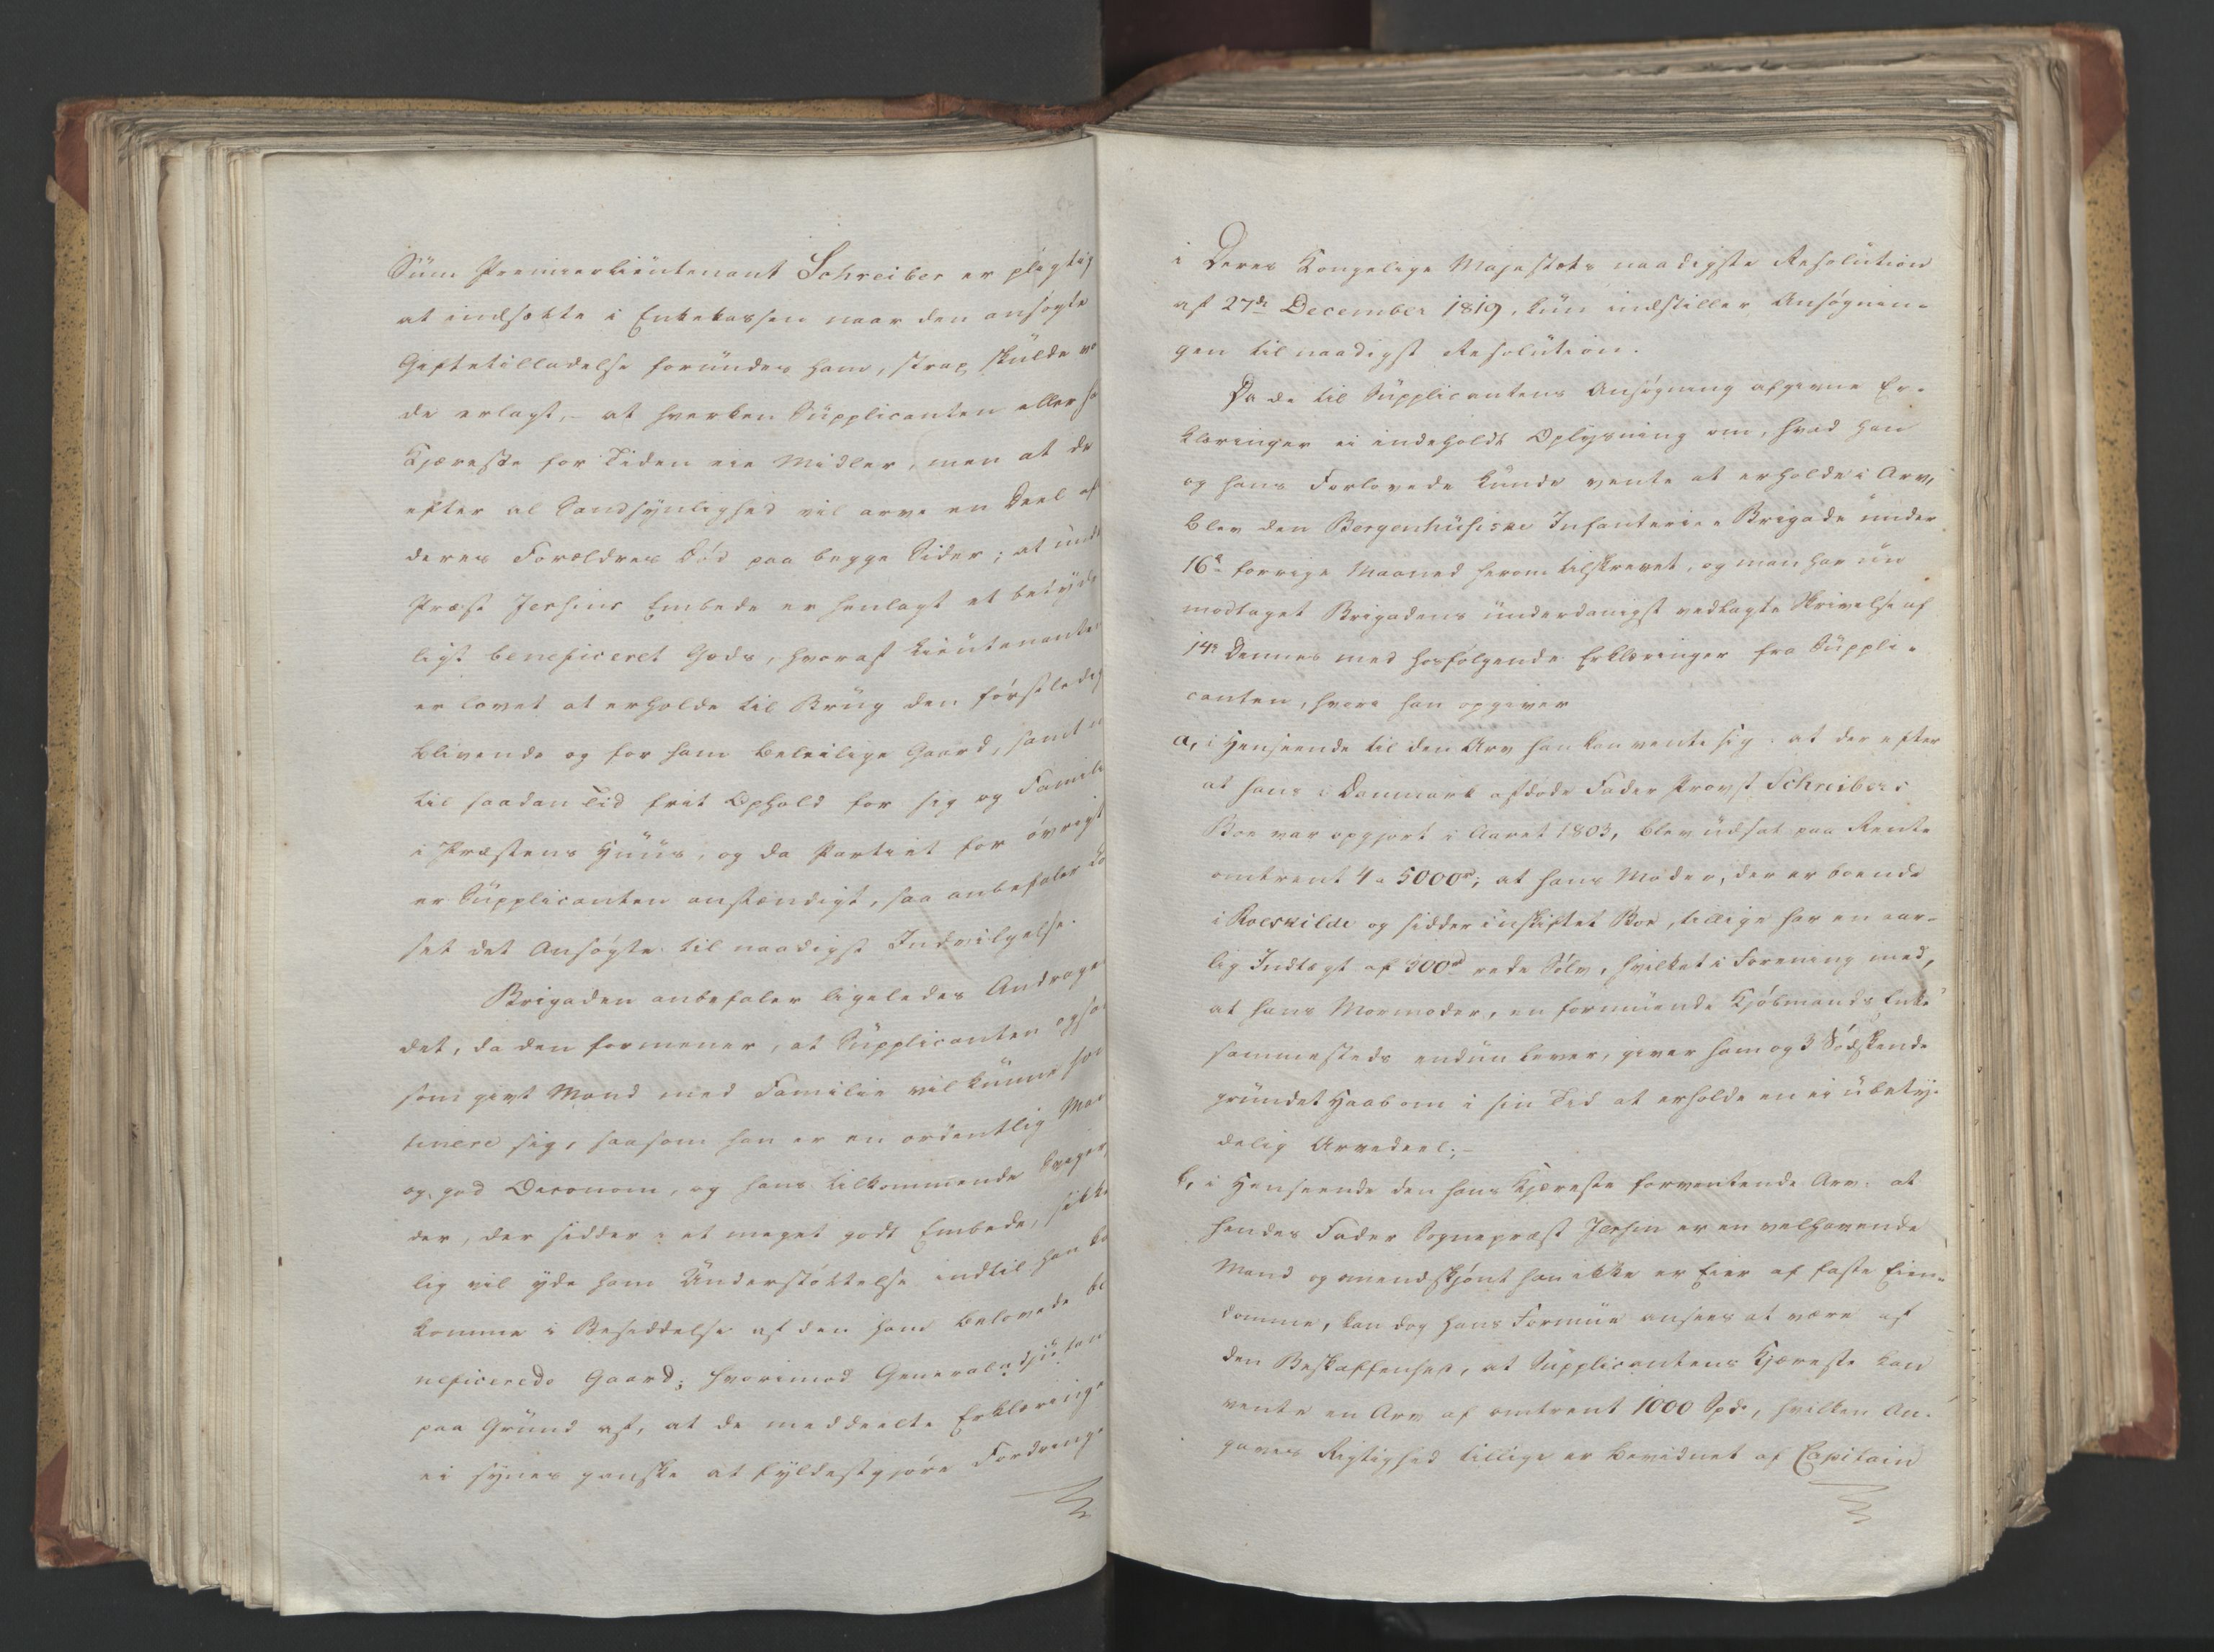 Sum Premierlieutenant Schreiber er pligtig
at indsætte i Enkekassen naar den ansøgte
Giftetilladelse forundes ham, strax skulde
de erlagt, – at hverken Supplicanten eller
Kjæreste for Tiden eie Midler, men at de
efter al Sandsynlighed vil arve en Deel af
deres Forældres Død paa begge Sider; at
Præst Jersins Embede er henlagt et
ligt beneficeret Gods, hvoraf Lieutenanten
er lovet at erholde til Brug den første
blivende og for ham beleilige Gaard, samt
til saadan Tid frit Ophold for sig og
i Præstens Huus, og da Partiet for øvrigt
er Supplicanten anstændigt, saa anbefaler
set det Ansøgte til naadigst Indvilgelse.
Brigaden anbefaler ligeledes
det, da den formener, at Supplicanten
som givt Mand med Familie vil kunne
tinere sig, saasom han er en ordentlig
og god Oeconom, og hans tilkommende
der, der sidder i et meget godt Embede,
lig vil yde ham Understøttelse indtil han
komme i Besiddelse af den ham belovede
neficerede Gaard; hvorimod
paa Grund af, at de meddeelte
ei synes ganske at fyldestgjøre
i Deres Kongelige Majestæts naadigste Resolution
af 27de December 1819, kun indstiller Ansøgnin-
gen til naadigst Resolution.
Da de til Supplicantens Ansøgning afgivne Er-
klæringer ei indeholdt Oplysning om, hvad han
og hans Forlovede kunde vente at erholde i Arv,
blev den Bergenhusiske Infanterie Brigade under
16de forrige Maaned herom tilskrevet, og man har nu
modtaget Brigadens underdanigst vedlagte Skrivelse af
14de dennes med hosfølgende Erklæringer fra Suppli-
canten, hvori han opgiver
a, i Henseende til den Arv han kan vente sig: at der efter
at hans i Danmark afdøde Fader Provst Schreibers
Boe var opgjort i Aaret 1803, blev udsat paa Rente
omtrent 4 a 5000rd; at hans Moder, der er boende
i Roeskilde og sidder i uskiftet Boe, tillige har en aar-
lig Indtægt af 300rd rede Sølv, hvilket i Forening med,
at hans Mormoder, en formuende Kjøbmands Enke
sammesteds endnu lever, giver ham og 3 Sødskende
grundet Haab om i sin Tid at erholde en ei ubety-
delig Arvedeel; –
b, i Henseende den hans Kjæreste forventende Arv: at
hendes Fader Sognepræst Jersin er en velhavende
Mand og omendskjønt han ikke er Eier af faste Eien-
domme, kan dog hans Formue ansees at være af
den Beskaffenhed, at Supplicantens Kjæreste kan
vente en Arv af omtrent 1000 Spd., hvilken An-
gavets Rigtighed tillige er bevidnet af Capitain